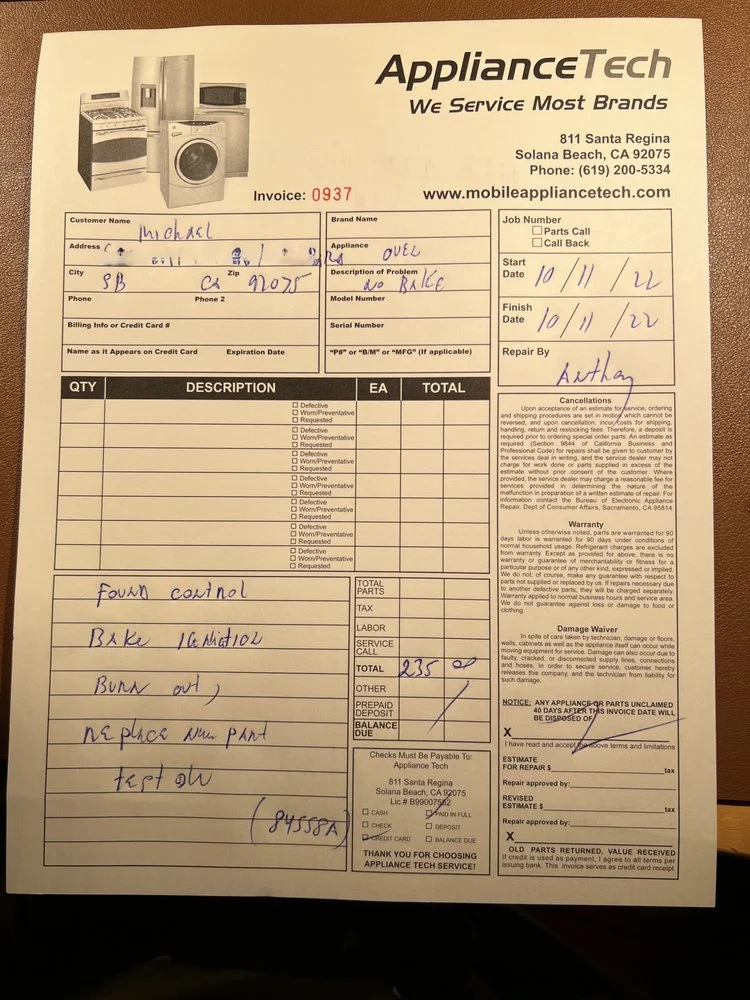 ApplianceTech
We Service Most Brands
811 Santa Regina
Solana Beach, CA 92075
Phone: (619) 200-5334
Invoice: 0937
www.mobileappliancetech.com
Customer Name
Michael
Address
City
SB
CA
Zip
92075
Phone
Phone 2
Billing Info or Credit Card #
Name as it Appears on Credit Card
Expiration Date
Brand Name
Appliance
OVEN
Description of Problem
NO BAKE
Model Number
Serial Number
"P#" or "B/M" or "MFG" (If applicable)
Job Number
Parts Call
Call Back
Start
Date
10/11/22
Finish
Date
10/11/22
Repair By
Anthony
QTY
DESCRIPTION
EA
TOTAL
Defective
Worn/Preventative
Requested
Defective
Worn/Preventative
Requested
Defective
Worn/Preventative
Requested
Defective
Worn/Preventative
Requested
Defective
Worn/Preventative
Requested
Defective
Worn/Preventative
Requested
Defective
Worn/Preventative
Requested
Found control
Bake ignition
Burn out,
Replace new part
test ok
(84558A)
TOTAL
PARTS
TAX
LABOR
SERVICE
CALL
TOTAL
235 00
OTHER
PREPAID
DEPOSIT
BALANCE
DUE
Checks Must Be Payable To:
Appliance Tech
811 Santa Regina
Solana Beach, CA 92075
Lic.# B99007582
CASH
PAID IN FULL
CHECK
DEPOSIT
CREDIT CARD
BALANCE DUE
THANK YOU FOR CHOOSING
APPLIANCE TECH SERVICE!
Cancellations
Upon acceptance of an estimate for service, ordering
and shipping procedures are set in motion which cannot be
reversed, and upon cancellation, incur costs for shipping,
handling, return and restocking fees. Therefore, a deposit is
required prior to ordering special order parts. An estimate as
required (Section 9844 of California Business and
Professional Code) for repairs shall be given to customer by
the services deal in writing, and the service dealer may not
charge for work done or parts supplied in excess of the
estimate without prior consent of the customer. Where
provided, the service dealer may charge a reasonable fee for
services provided in determining the nature of the
malfunction in preparation of a written estimate of repair. For
information contact the Bureau of Electronic Appliance
Repair, Dept of Consumer Affairs, Sacramento, CA 95814
Warranty
Unless otherwise noted, parts are warranted for 90
days labor is warranted for 90 days under conditions of
normal household usage. Refrigerant charges are excluded
from warranty. Except as provided for above, there is no
warranty or guarantee of merchantability or fitness for a
particular purpose or of any other kind, expressed or implied.
We do not, of course, make any guarantee with respect to
parts not supplied or replaced by us. If repairs necessary due
to another defective parts, they will be charged separately.
Warranty applied to normal business hours and service area.
We do not guarantee against loss or damage to food or
clothing.
Damage Waiver
In spite of care taken by technician, damage or floors,
walls, cabinets as well as the appliance itself can occur while
moving equipment for service. Damage can also occur due to
faulty, cracked, or disconnected supply lines, connections
and hoses. In order to secure service, customer hereby
releases this company, and the technician from liability for
such damage.
NOTICE: ANY APPLIANCE OR PARTS UNCLAIMED
40 DAYS AFTER THIS INVOICE DATE WILL
BE DISPOSED OF
X
I have read and accept the above terms and limitations
ESTIMATE
FOR REPAIR $ tax
Repair approved by:
REVISED
ESTIMATE $ tax
Repair approved by:
X
OLD PARTS RETURNED, VALUE RECEIVED
If credit is used as payment, I agree to all terms per
issuing bank. This invoice serves as credit card receipt